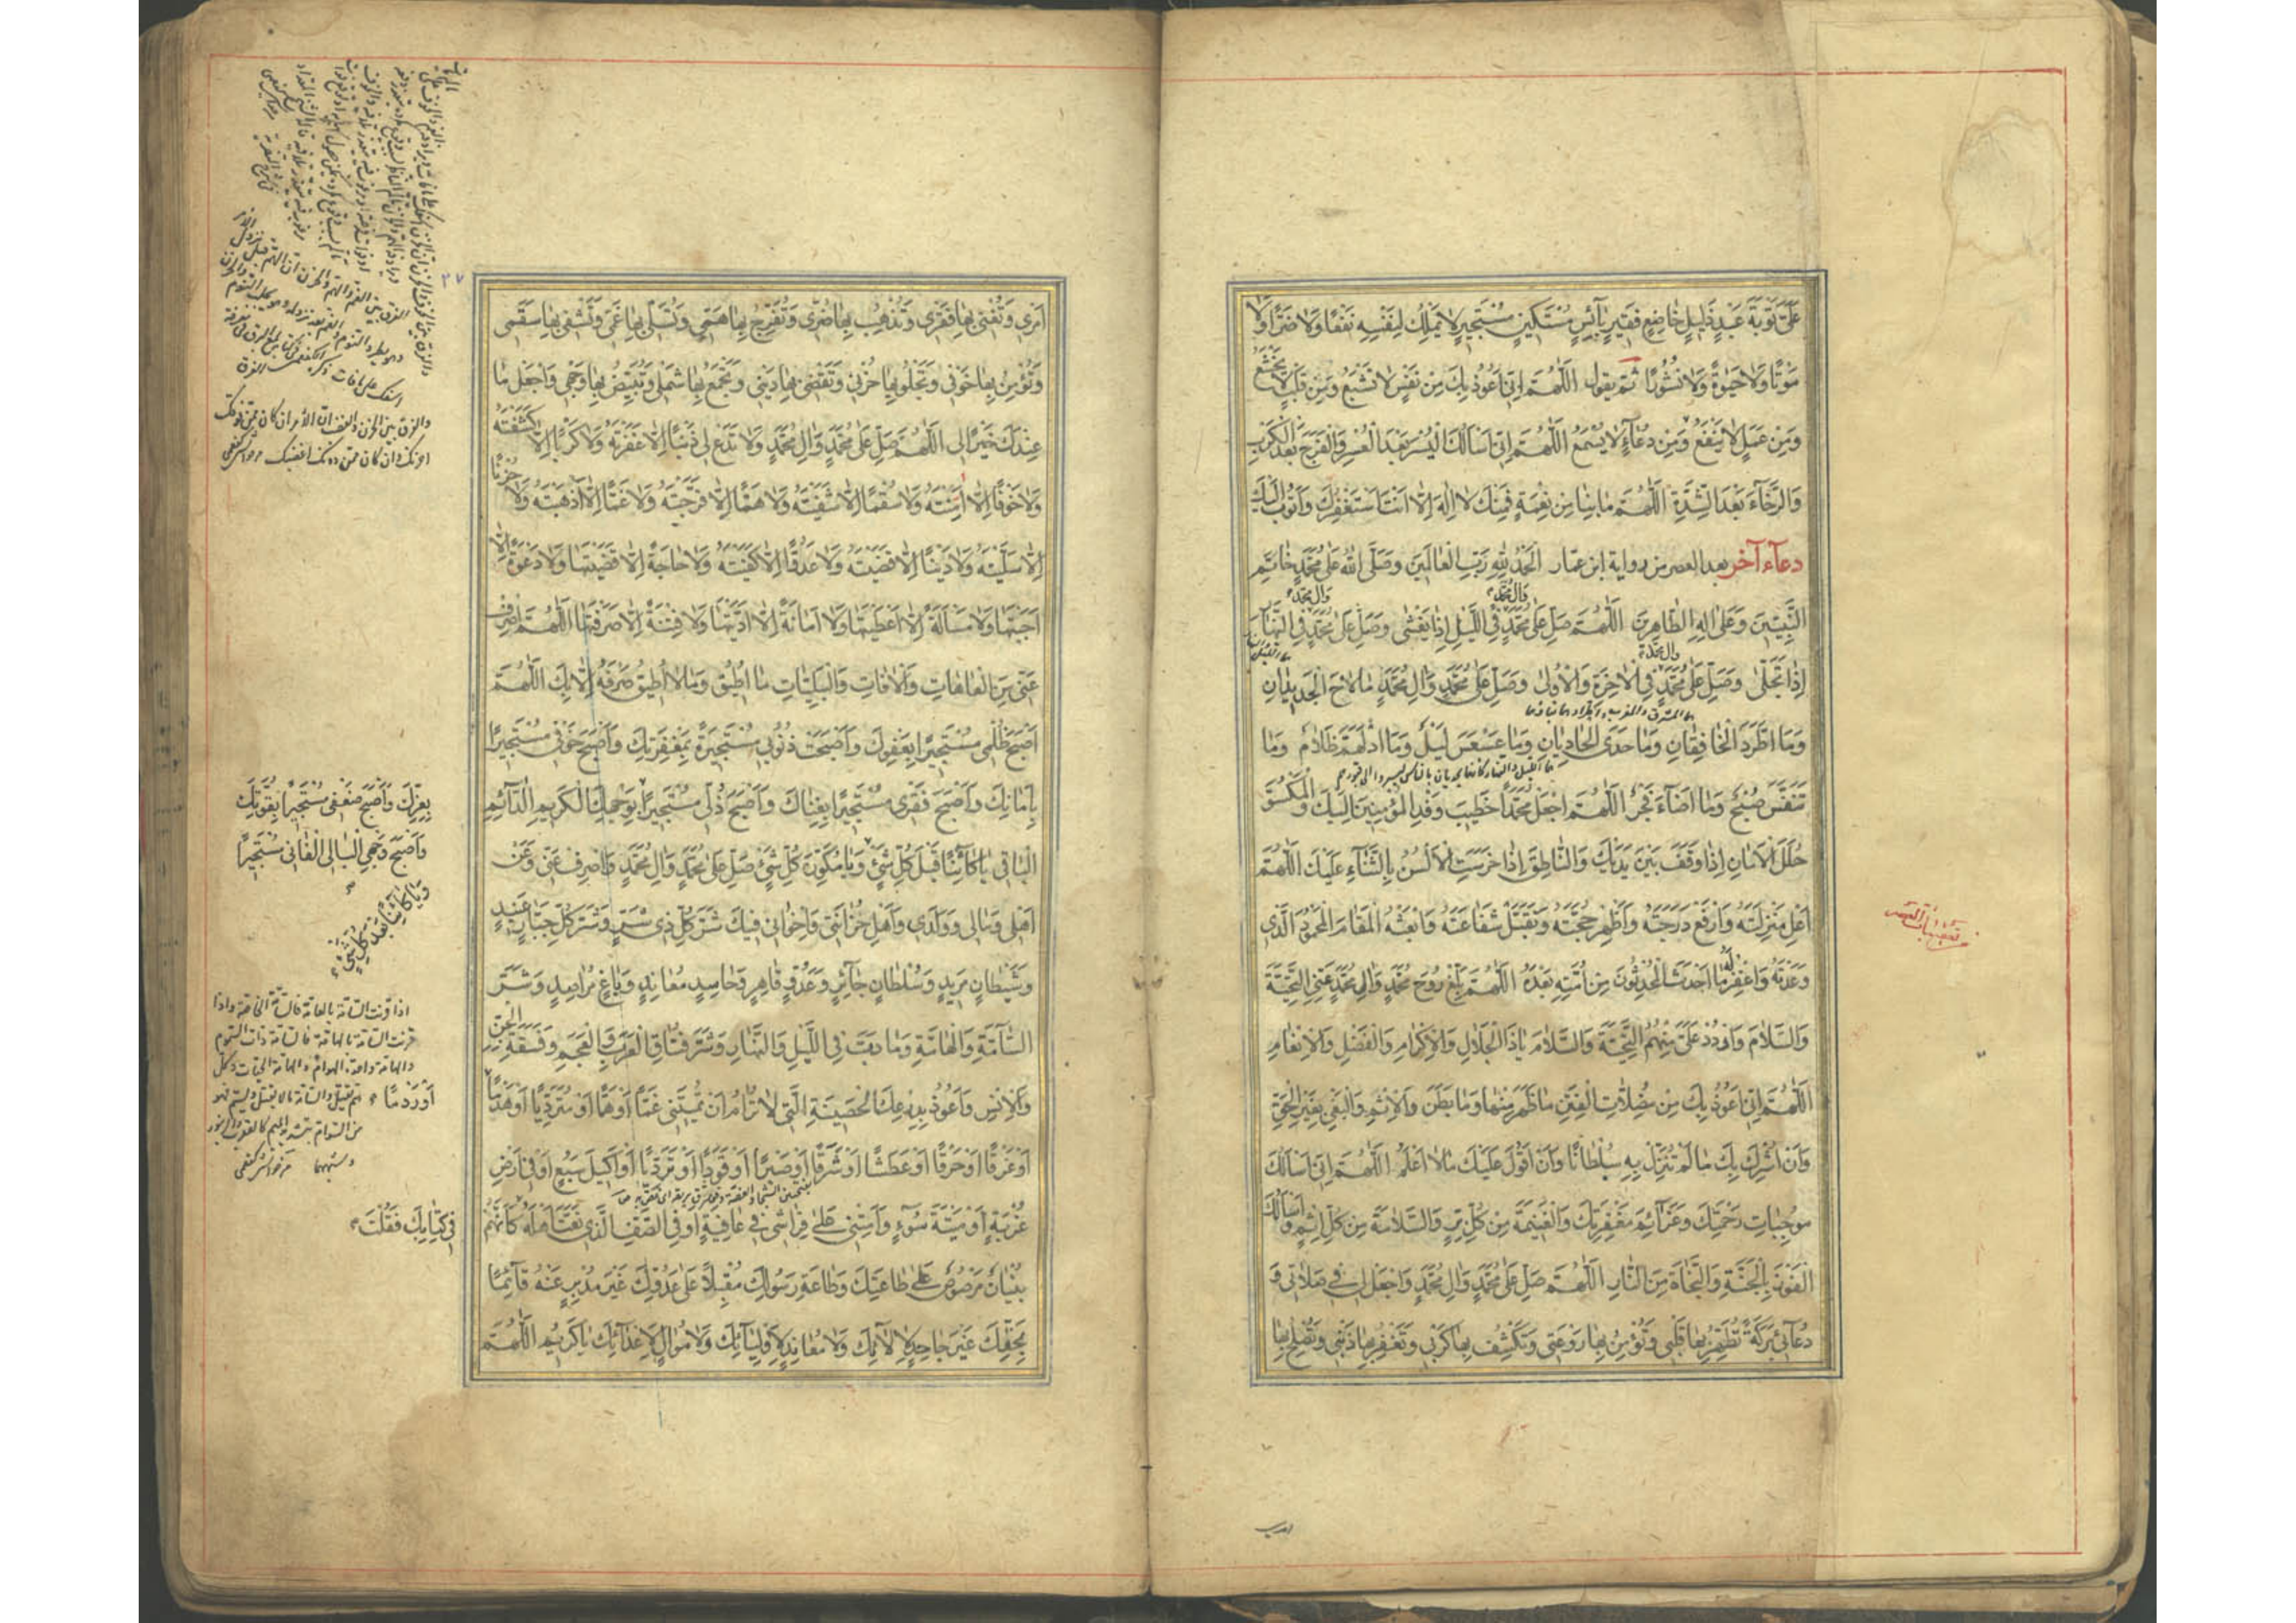 عَلَيَّ تَوْبَةَ عَبْدٍ ذَلِيلٍ خَاضِعٍ فَقِيرٍ بَآئِسٍ مُسْتَكِينٍ مُسْتَجِيرٍ لَا يَمْلِكُ لِنَفْسِهِ نَفْعًا وَلَا ضَرًّا وَلَا
مَوْتًا وَلَا حَيٰوةً وَلَا نُشُورًا ثُمَّ يقول اَللّٰهُمَّ اِنّٖي اَعُوذُ بِكَ مِنْ نَفْسٍ لَا تَشْبَعُ وَمِنْ قَلْبٍ لَا يَخْشَعُ
وَمِنْ عَمَلٍ لَا يَنْفَعُ وَمِنْ دُعَآءٍ لَا يُسْمَعُ اَللّٰهُمَّ اِنّٖي اَسْاَلُكَ الْيُسْرَ بَعْدَ الْعُسْرِ وَالْفَرَجَ بَعْدَ الْكَرْبِ
وَالرَّخَآءَ بَعْدَ الشِّدَّةِ اَللّٰهُمَّ مَا بِنَا مِنْ نِعْمَةٍ فَمِنْكَ لَا اِلٰهَ اِلَّا اَنْتَ اَسْتَغْفِرُكَ وَاَتُوبُ اِلَيْكَ
دعآء آخر بعد العصر من رواية ابن عمار اَلْحَمْدُ لِلّٰهِ رَبِّ الْعَالَمِينَ وَصَلَّى اللّٰهُ عَلٰى مُحَمَّدٍ خَاتِمِ
وَاٰلِ مُحَمَّدٍ وَاٰلِ مُحَمَّدٍ
النَّبِيّٖينَ وَعَلٰى اٰلِهِ الطَّاهِرِينَ اَللّٰهُمَّ صَلِّ عَلٰى مُحَمَّدٍ فِي اللَّيْلِ اِذَا يَغْشٰى وَصَلِّ عَلٰى مُحَمَّدٍ فِي النَّهَارِ
وَاٰلِ مُحَمَّدٍ
اِذَا تَجَلّٰى وَصَلِّ عَلٰى مُحَمَّدٍ فِي الْاٰخِرَةِ وَالْاُولٰى وَصَلِّ عَلٰى مُحَمَّدٍ وَاٰلِ مُحَمَّدٍ مَا لَاحَ الْجَدِيدَانِ
هما المشرق والمغرب
وَمَا اطَّرَدَ الْخَافِقَانِ وَمَا حَدَى الْحَادِيَانِ وَمَا عَسْعَسَ لَيْلٌ وَمَا ادْلَهَمَّ ظَلَامٌ وَمَا
تَنَفَّسَ صُبْحٌ وَمَا اَضَآءَ فَجْرٌ اَللّٰهُمَّ اجْعَلْ مُحَمَّدًا خَطِيبَ وَفْدِ الْمُؤْمِنِينَ اِلَيْكَ وَالْمَكْسُوَّ
حُلَلَ الْاَمَانِ اِذَا وَقَفَ بَيْنَ يَدَيْكَ وَالنَّاطِقَ اِذَا خَرَسَتِ الْاَلْسُنُ بِالثَّنَآءِ عَلَيْكَ اَللّٰهُمَّ
اَعْلِ مَنْزِلَتَهُ وَارْفَعْ دَرَجَتَهُ وَاَظْهِرْ حُجَّتَهُ وَتَقَبَّلْ شَفَاعَتَهُ وَابْعَثْهُ الْمَقَامَ الْمَحْمُودَ الَّذٖي
وَعَدْتَهُ وَاغْفِرْ لَهُ مَا اَحْدَثَ الْمُحْدِثُونَ مِنْ اُمَّتِهِ بَعْدَهُ اَللّٰهُمَّ بَلِّغْ رُوحَ مُحَمَّدٍ وَاٰلِ مُحَمَّدٍ عَنِّي التَّحِيَّةَ
وَالسَّلَامَ وَارْدُدْ عَلَيَّ مِنْهُمُ التَّحِيَّةَ وَالسَّلَامَ يَا ذَا الْجَلَالِ وَالْاِكْرَامِ وَالْفَضْلِ وَالْاِنْعَامِ
اَللّٰهُمَّ اِنّٖي اَعُوذُ بِكَ مِنْ مُضِلَّاتِ الْفِتَنِ مَا ظَهَرَ مِنْهَا وَمَا بَطَنَ وَالْاِثْمِ وَالْبَغْيِ بِغَيْرِ الْحَقِّ
وَاَنْ اُشْرِكَ بِكَ مَا لَمْ تُنَزِّلْ بِهِ سُلْطَانًا وَاَنْ اَقُولَ عَلَيْكَ مَا لَا اَعْلَمُ اَللّٰهُمَّ اِنّٖي اَسْاَلُكَ
مُوجِبَاتِ رَحْمَتِكَ وَعَزَآئِمَ مَغْفِرَتِكَ وَالْغَنِيمَةَ مِنْ كُلِّ بِرٍّ وَالسَّلَامَةَ مِنْ كُلِّ اِثْمٍ وَاَسْاَلُكَ
الْفَوْزَ بِالْجَنَّةِ وَالنَّجَاةَ مِنَ النَّارِ اَللّٰهُمَّ صَلِّ عَلٰى مُحَمَّدٍ وَاٰلِ مُحَمَّدٍ وَاجْعَلْ لٖي فٖي صَلَاتٖي وَ
دُعَآئٖي بَرَكَةً تُطَهِّرُ بِهَا قَلْبٖي وَتُؤْمِنُ بِهَا رَوْعَتٖي وَتَكْشِفُ بِهَا كَرْبٖي وَتَغْفِرُ بِهَا ذَنْبٖي وَتُصْلِحُ بِهَا
تعقيبات العصر
٢٧
اَمْرٖي وَتُغْنٖي بِهَا فَقْرٖي وَتُذْهِبُ بِهَا ضُرّٖي وَتُفَرِّجُ بِهَا هَمّٖي وَتُسَلّٖي بِهَا غَمّٖي وَتَشْفٖي بِهَا سَقَمٖي
وَتُؤْمِنُ بِهَا خَوْفٖي وَتَجْلُو بِهَا حُزْنٖي وَتَقْضٖي بِهَا دَيْنٖي وَتَجْمَعُ بِهَا شَمْلٖي وَتُبَيِّضُ بِهَا وَجْهٖي وَاجْعَلْ مَا
عِنْدَكَ خَيْرًا لٖي اَللّٰهُمَّ صَلِّ عَلٰى مُحَمَّدٍ وَاٰلِ مُحَمَّدٍ وَلَا تَدَعْ لٖي ذَنْبًا اِلَّا غَفَرْتَهُ وَلَا كَرْبًا اِلَّا كَشَفْتَهُ
وَلَا خَوْفًا اِلَّا اٰمَنْتَهُ وَلَا سُقْمًا اِلَّا شَفَيْتَهُ وَلَا هَمًّا اِلَّا فَرَّجْتَهُ وَلَا غَمًّا اِلَّا اَذْهَبْتَهُ وَلَا حُزْنًا
اِلَّا سَلَّيْتَهُ وَلَا دَيْنًا اِلَّا قَضَيْتَهُ وَلَا عَدُوًّا اِلَّا كَفَيْتَهُ وَلَا حَاجَةً اِلَّا قَضَيْتَهَا وَلَا دَعْوَةً اِلَّا
اَجَبْتَهَا وَلَا مَسْاَلَةً اِلَّا اَعْطَيْتَهَا وَلَا اَمَانَةً اِلَّا اَدَّيْتَهَا وَلَا فِتْنَةً اِلَّا صَرَفْتَهَا اَللّٰهُمَّ اصْرِفْ
عَنّٖي مِنَ الْعَاهَاتِ وَالْاٰفَاتِ وَالْبَلِيَّاتِ مَا اُطِيقُ وَمَا لَا اُطِيقُ صَرْفَهُ اِلَّا بِكَ اَللّٰهُمَّ
اَصْبَحَ ظُلْمٖي مُسْتَجِيرًا بِعَفْوِكَ وَاَصْبَحَتْ ذُنُوبٖي مُسْتَجِيرَةً بِمَغْفِرَتِكَ وَاَصْبَحَ خَوْفٖي مُسْتَجِيرًا
بِاَمَانِكَ وَاَصْبَحَ فَقْرٖي مُسْتَجِيرًا بِغِنَاكَ وَاَصْبَحَ ذُلّٖي مُسْتَجِيرًا بِوَجْهِكَ الْكَرِيمِ الدَّآئِمِ
الْبَاقٖي يَا كَآئِنًا قَبْلَ كُلِّ شَيْءٍ وَيَا مُكَوِّنَ كُلِّ شَيْءٍ صَلِّ عَلٰى مُحَمَّدٍ وَاٰلِ مُحَمَّدٍ وَاصْرِفْ عَنّٖي وَعَنْ
اَهْلٖي وَمَالٖي وَوَلَدٖي وَاَهْلِ حُزَانَتٖي وَاِخْوَانٖي فِيكَ شَرَّ كُلِّ ذٖي شَرٍّ وَشَرَّ كُلِّ جَبَّارٍ عَنِيدٍ
وَشَيْطَانٍ مَرِيدٍ وَسُلْطَانٍ جَآئِرٍ وَعَدُوٍّ قَاهِرٍ وَحَاسِدٍ مُعَانِدٍ وَبَاغٍ مُرَاصِدٍ وَشَرِّ
السَّآمَّةِ وَالْهَامَّةِ وَمَا دَبَّ فِي اللَّيْلِ وَالنَّهَارِ وَشَرِّ فُسَّاقِ الْعَرَبِ وَالْعَجَمِ وَفَسَقَةِ الْجِنِّ
وَالْاِنْسِ وَاَعُوذُ بِدِرْعِكَ الْحَصِينَةِ الَّتٖي لَا تُرَامُ اَنْ تُمِيتَنٖي غَمًّا اَوْ هَمًّا اَوْ مُتَرَدِّيًا اَوْ هَدْمًا
اَوْ غَرَقًا اَوْ حَرَقًا اَوْ عَطَشًا اَوْ شَرَقًا اَوْ صَبْرًا اَوْ قَوَدًا اَوْ تَرَدِّيًا اَوْ اَكِيلَ سَبُعٍ اَوْ فٖي اَرْضِ
غُرْبَةٍ اَوْ مِيتَةَ سُوٓءٍ وَاَمِتْنٖي عَلٰى فِرَاشٖي فٖي عَافِيَةٍ اَوْ فِي الصَّفِّ الَّذٖي نَعَتَّ اَهْلَهُ كَاَنَّهُمْ
بُنْيَانٌ مَرْصُوصٌ عَلٰى طَاعَتِكَ وَطَاعَةِ رَسُولِكَ مُقْبِلًا عَلٰى عَدُوِّكَ غَيْرَ مُدْبِرٍ عَنْهُ قَآئِمًا
بِحَقِّكَ غَيْرَ جَاحِدٍ لِاٰلَآئِكَ وَلَا مُعَانِدٍ لِاَوْلِيَآئِكَ وَلَا مُوَالٍ لِاَعْدَآئِكَ يَا كَرِيمُ اَللّٰهُمَّ
بِعِزِّكَ وَاَصْبَحَ ضَعْفٖي مُسْتَجِيرًا بِقُوَّتِكَ
وَاَصْبَحَ وَجْهِيَ الْبَالِي الْفَانٖي مُسْتَجِيرًا
وَيَا كَآئِنًا بَعْدَ كُلِّ شَيْءٍ
اذا قرنت السامة بالعامة فالسامة الخاصة واذا
قرنت السامة بالهامة فالسامة ذات السموم
اَوْ رَدْمًا
فٖي كِتَابِكَ فَقُلْتَ